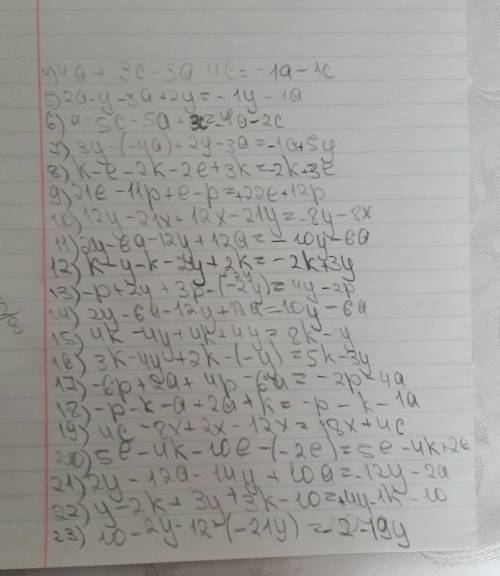 4) 4a + 3c - 3a 4c = -1a - 1c
5) 2a - y - 3a + 2y = -1y - 1a
6) a - 5c - 5a + 3c = -4a - 2c
7) 3y - (-4a) + 2y - 3a = -1a + 5y
8) k - e - 2k - 2e + 3k = -2k + 3e
9) 21e - 11p + e - p = +22e + 12p
10) 12y - 21x + 12x - 21y = -8y - 8x
11) 2y - 6a - 12y + 12a = -10y - 6a
12) k - y - k - 2y + 2k = -2k + 3y
13) -p + 2y + 3p - (-2y) = 4y - 2p
14) 2y - 6a - 12y + 12a = 10y - 6a
15) 4k - 4y + 4k + 4y = 8k - y
16) 3k - 4y + 2k - (-y) = 5k - 3y
17) -6p + 2a + 4p - 6a = -2p - 4a
18) -p - k - a + 2a + k = -p - k - 1a
19) 4c - 8x + 2x - 12x = 18x + 4c
20) 5e - 4k - 10e - (-2e) = 5e - 4k + 2e
21) 2y - 12a - 14y + 10a = -12y - 2a
22) y - 2k + 3y + 3k - 10 = +4y - 1k - 10
23) 10 - 2y - 12 - (-21y) = -2 - 19y